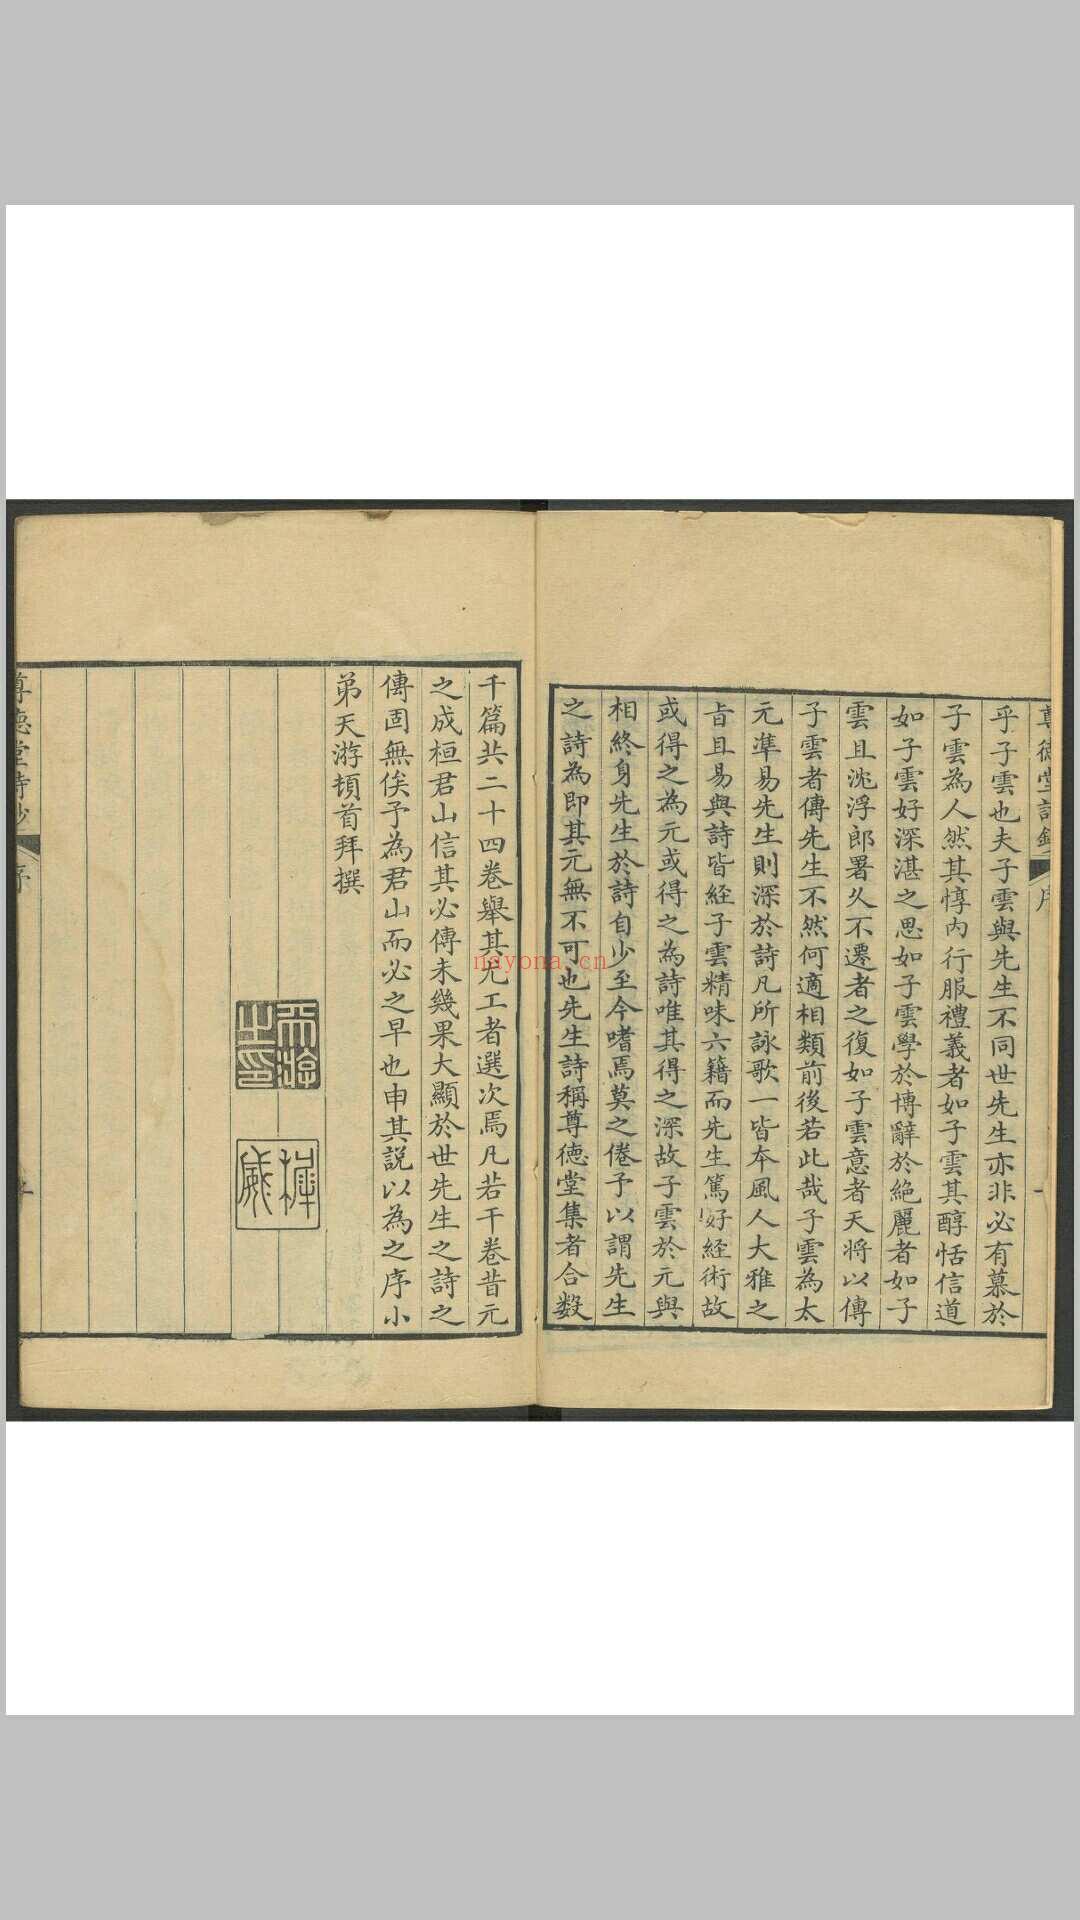 尊德堂詩鈔
序
一
乎子雲也夫子雲與先生不同世先生亦非必有慕於
子雲為人然其惇內行服禮義者如子雲其醇恬信道
如子雲好深湛之思如子雲學於博辭於絶麗者如子
雲且沈浮郎署久不遷者之復如子雲意者天將以傳
子雲者傳先生不然何適相類前後若此哉子雲為太
元準易先生則深於詩凡所詠歌一皆本風人大雅之
旨且易與詩皆経子雲精味六籍而先生篤好経術故
或得之為元或得之為詩唯其得之深故子雲於元與
相終身先生於詩自少至今嗜焉莫之倦予以謂先生
之詩為即其元無不可也先生詩稱尊徳堂集者合数
千篇共二十四卷舉其尤工者選次焉凡若干卷昔元
之成桓君山信其必傳未幾果大顯於世先生之詩之
傳固無俟予為君山而必之早也申其説以為之序小
弟天游頓首拜撰
天游之印
稺威
尊德堂詩鈔
序
nayona.cn